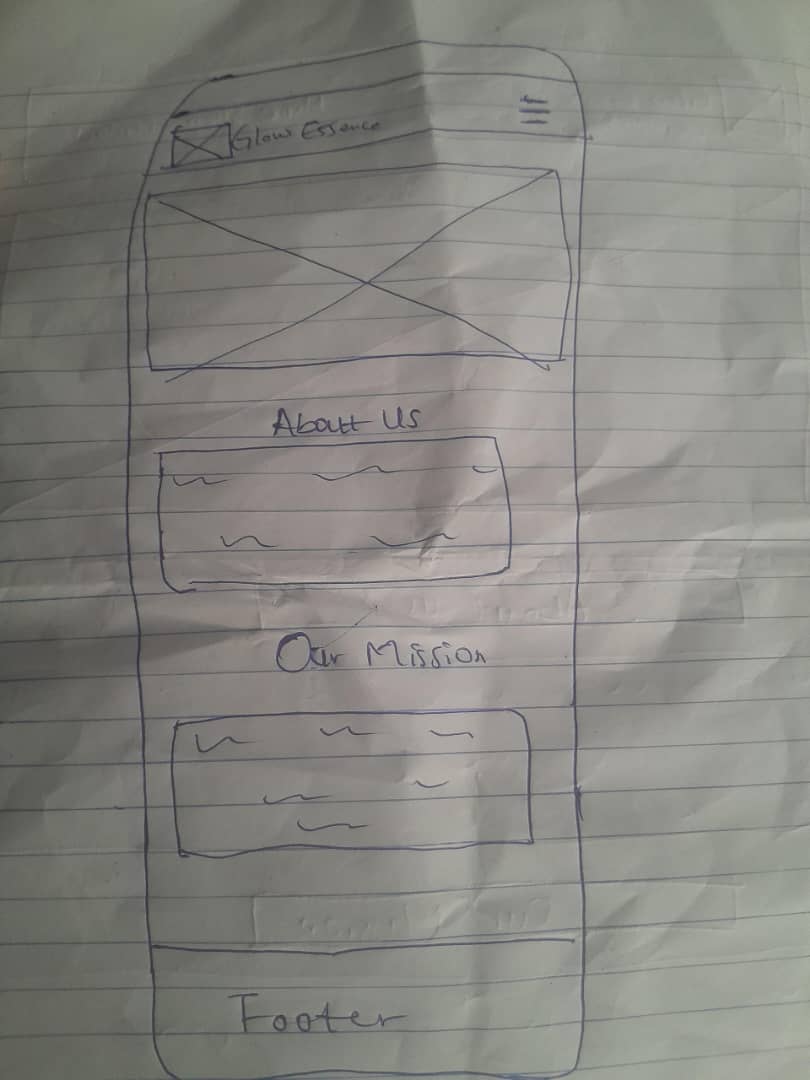 Glow Essence
About Us
Our Mission
Footer